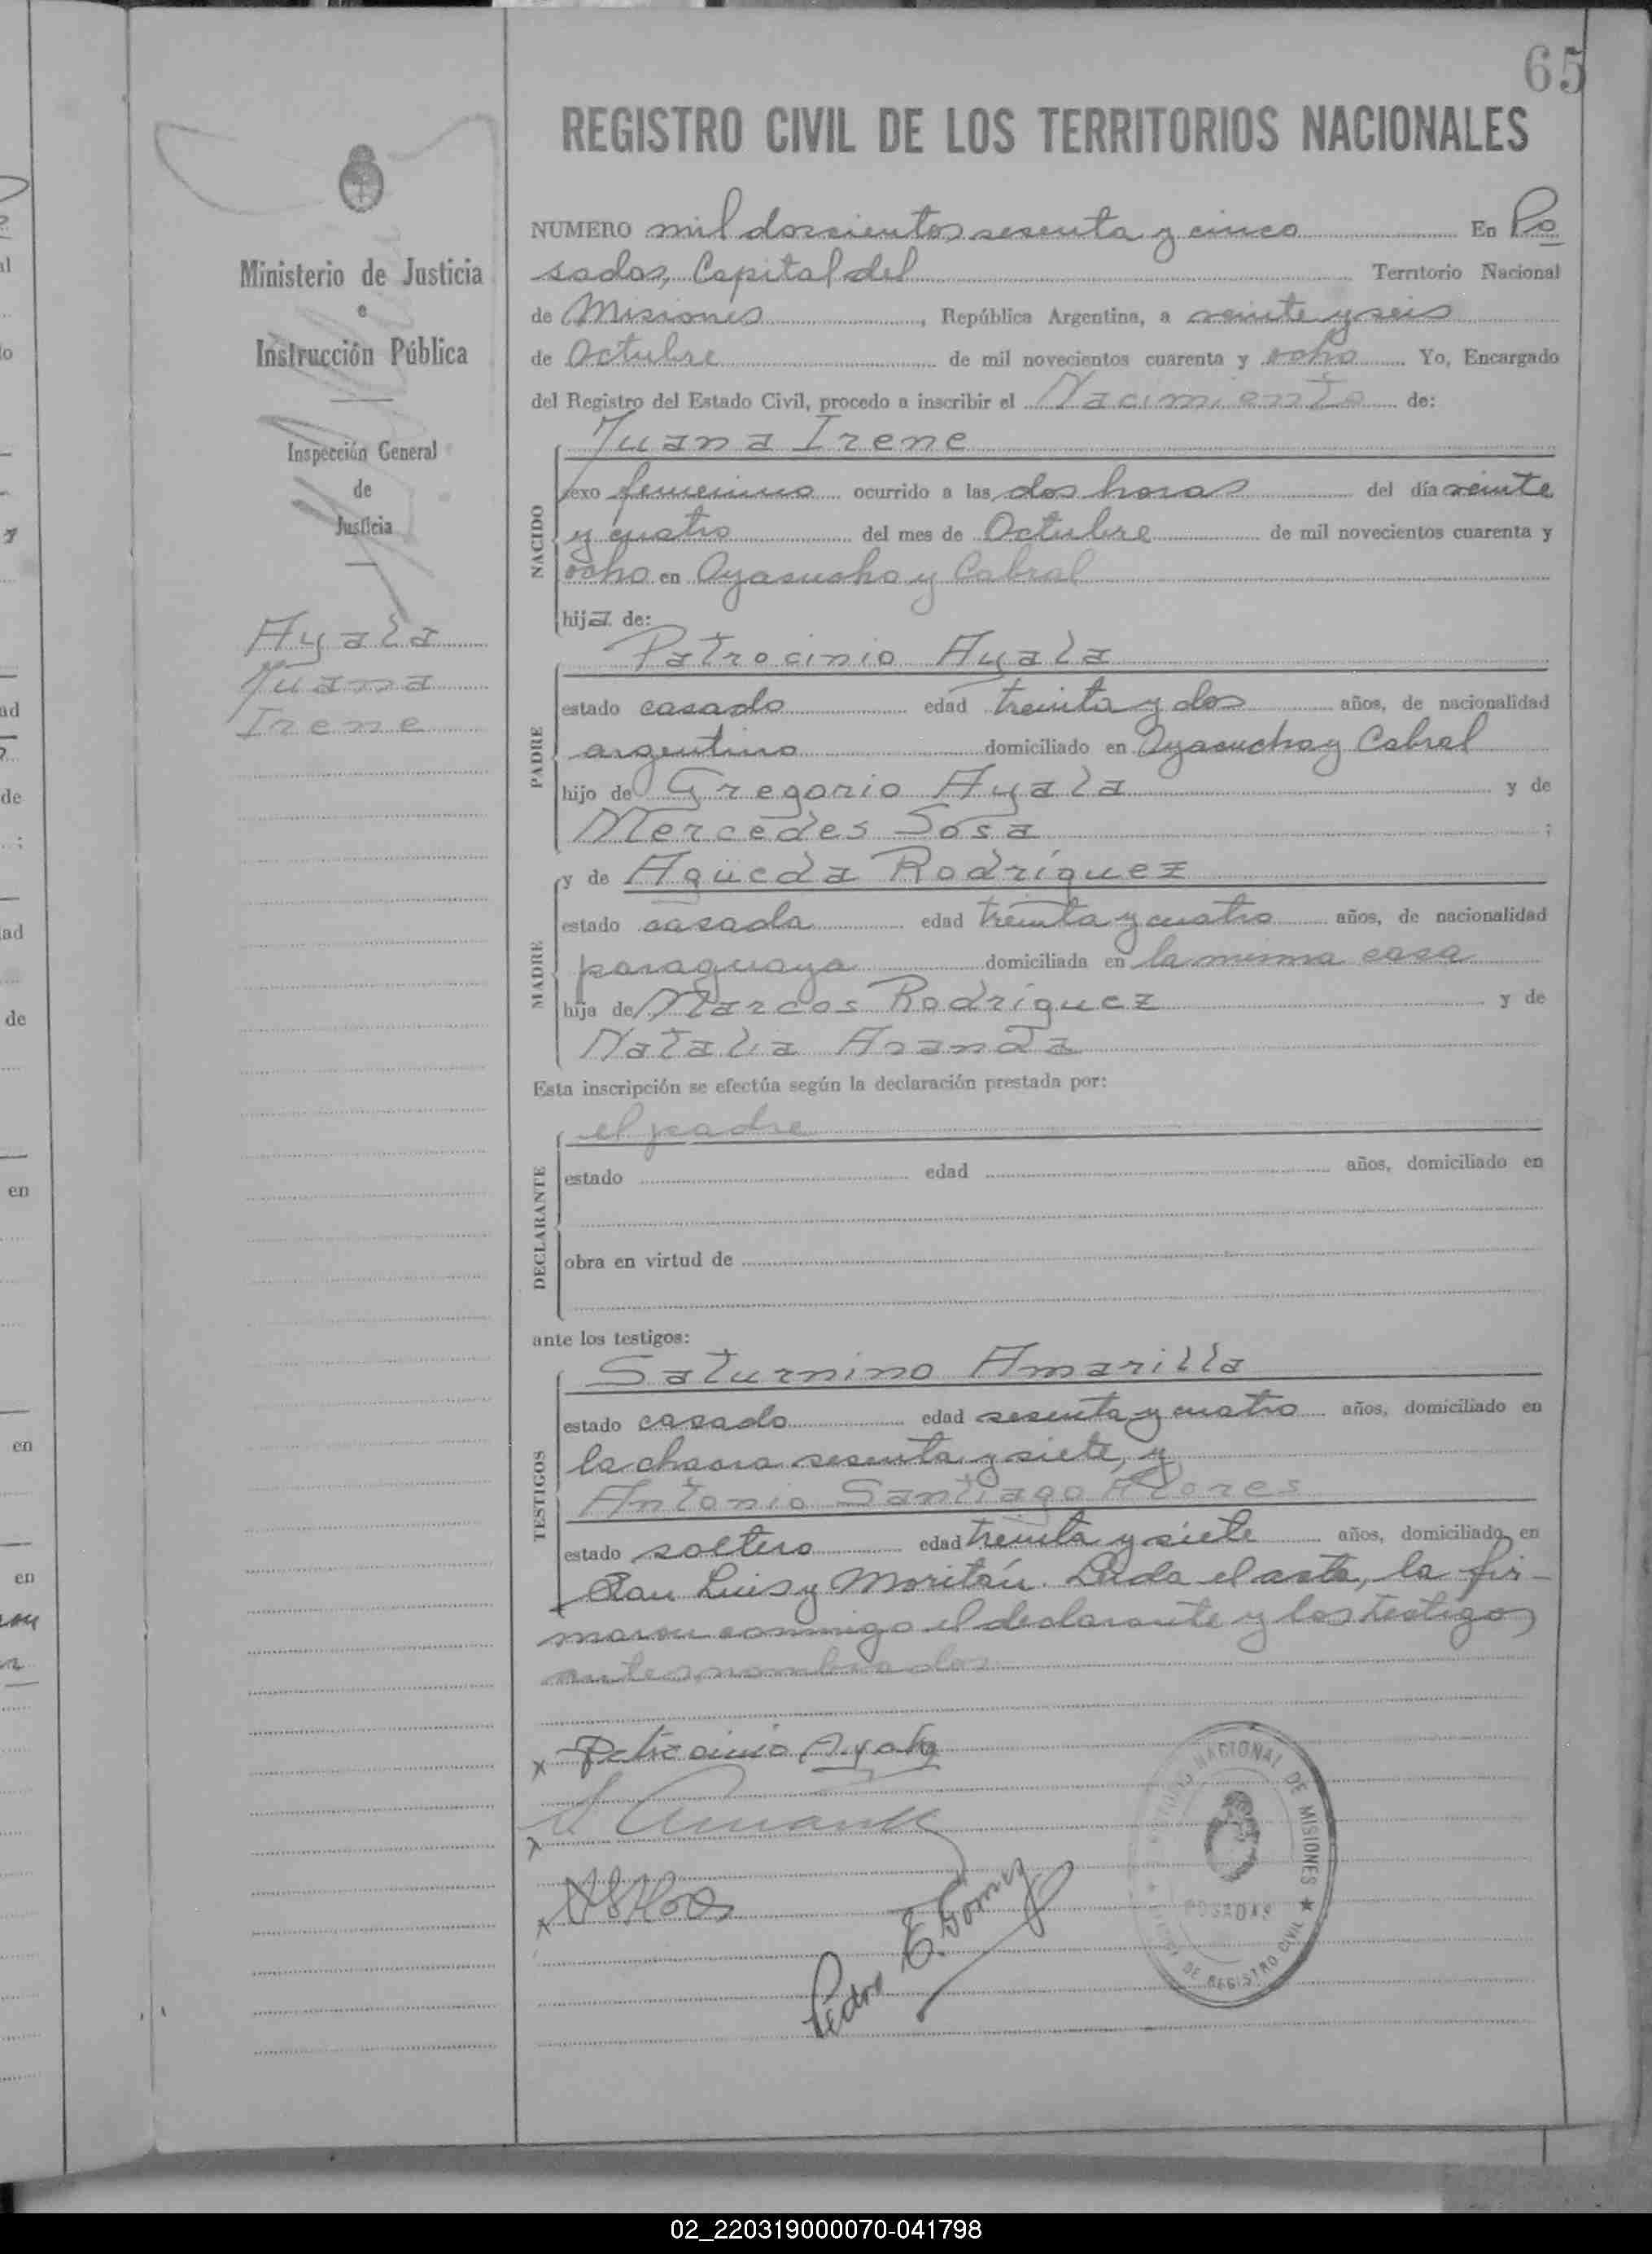 65
REGISTRO CIVIL DE LOS TERRITORIOS NACIONALES
Ministerio de Justicia
e
Instrucción Pública
Inspección General
de
Justicia
Ayala
Juana
Irene
NUMERO mil doscientos sesenta y cinco En Po
sadas, Capital del Territorio Nacional
de Misiones, República Argentina, a veinte y seis
de Octubre de mil novecientos cuarenta y ocho Yo, Encargado
del Registro del Estado Civil, procedo a inscribir el Nacimiento de:
Juana Irene
NACIDO
sexo femenino ocurrido a las dos horas del día veinte
y cuatro del mes de Octubre de mil novecientos cuarenta y
ocho en Ayacucho y Cabral
hija de:
Patrocinio Ayala
PADRE
estado casado edad treinta y dos años, de nacionalidad
argentino domiciliado en Ayacucho y Cabral
hijo de Gregorio Ayala y de
Mercedes Sosa ;
y de Agueda Rodríguez
MADRE
estado casada edad treinta y cuatro años, de nacionalidad
paraguaya domiciliada en la misma casa
hija de Marcos Rodríguez y de
Natalia Aranda
Esta inscripción se efectúa según la declaración prestada por:
el padre
DECLARANTE
estado edad años, domiciliado en
obra en virtud de
ante los testigos:
Saturnino Amarilla
TESTIGOS
estado casado edad sesenta y cuatro años, domiciliado en
la chacra sesenta y siete, y
Antonio Santiago Flores
estado soltero edad treinta y siete años, domiciliado en
San Luis y Moritán. Leída el acta, la fir-
maron conmigo el declarante y los testigos
antes nombrados
x Patrocinio Ayala
x
x
Pedro E. Gomez
NACIONAL DE MISIONES
POSADAS
DE REGISTRO CIVIL
02_220319000070-041798